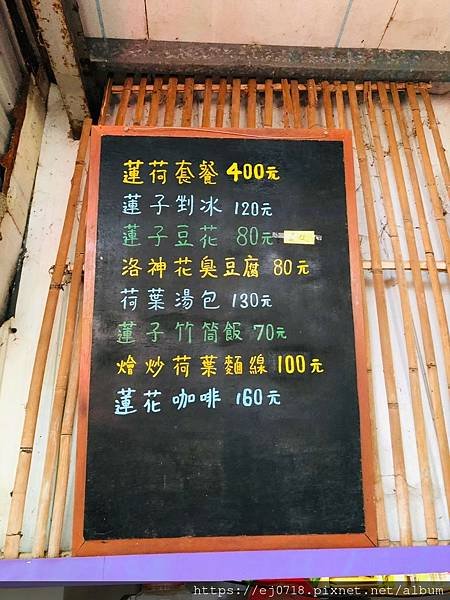 蓮荷套餐 400元
蓮子剉冰 120元
蓮子豆花 80元
洛神花臭豆腐 80元
荷葉湯包 130元
蓮子竹筒飯 70元
燴炒荷葉麵線 100元
蓮花咖啡 160元
https://ej0718.pixnet.net/album